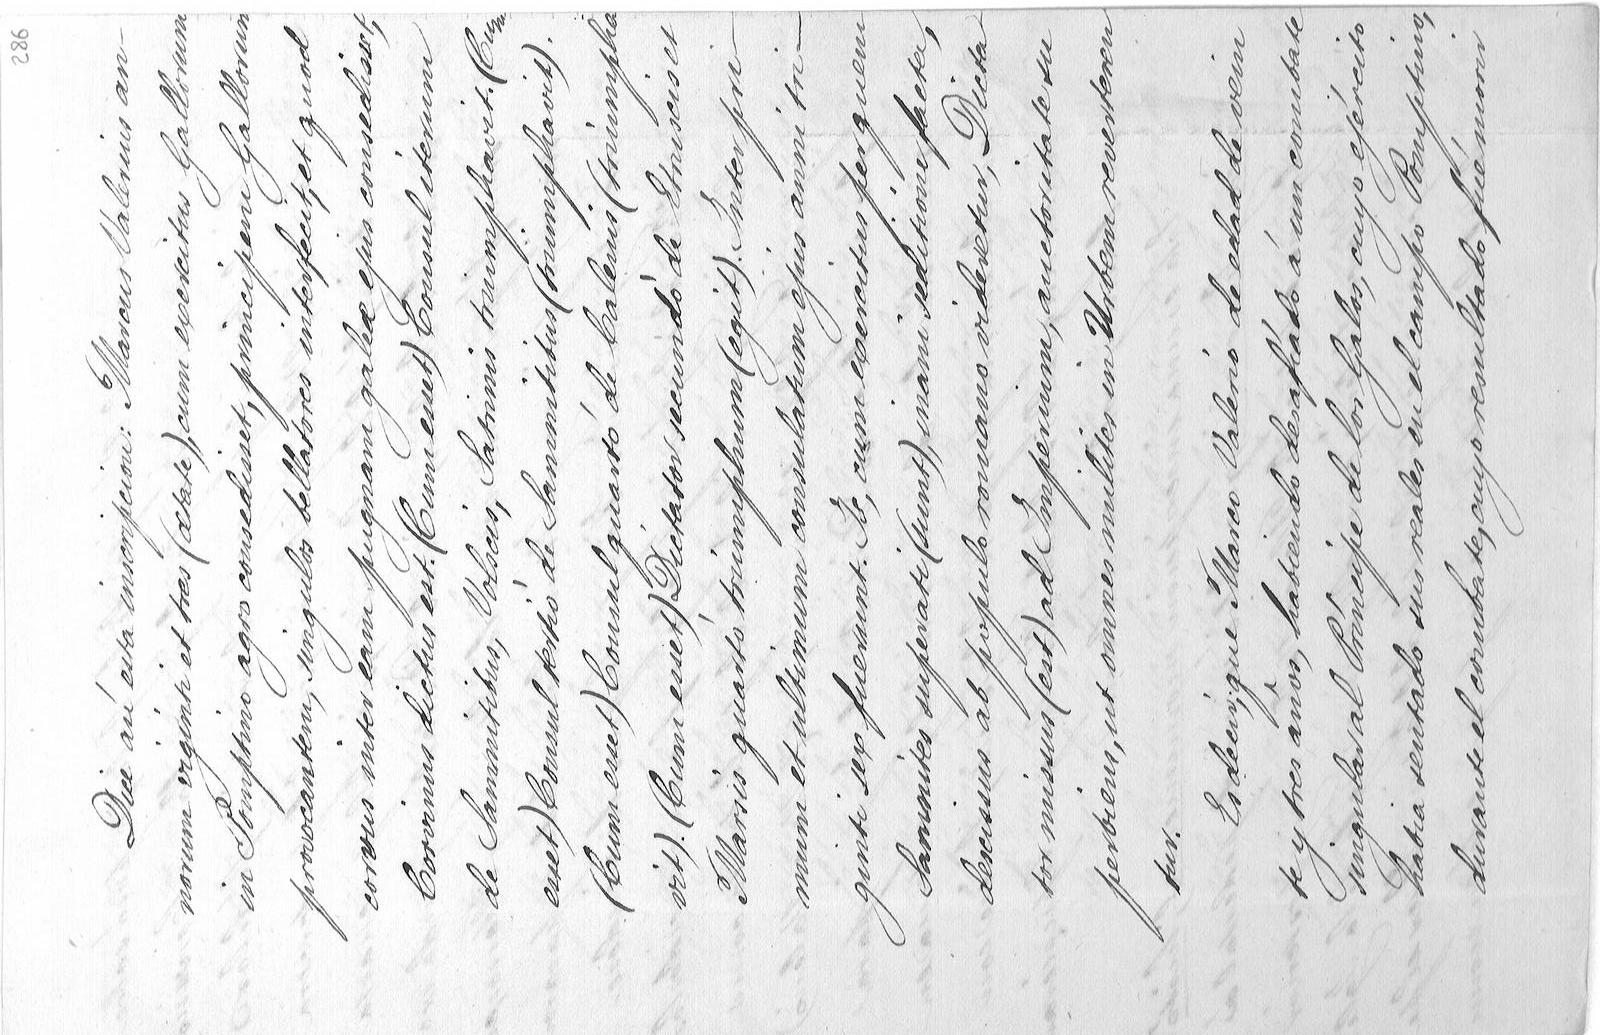 286
Dice así esta inscripcion: Marcus Valerius an-
norum viginti et tres (ætate), cum exercitus Gallorum
in Pomptino agro consedisset, principem Gallorum
provocantem, singulos bellatores interfecit, et quod
corvus inter eam pugnam galeæ ejus consedisset,
Corvinus dictus est. (Cum esset) Consul iterum
de Samnitibus, Volscis, Satrinis triumphavit. (Cum
esset) Consul tertió de Samnitibus (triumphavit).
(Cum esset) Consul quartó de Calenis (triumpha
vit). (Cum esset) Dictador secundó de Etruscis et
Marsis quartó triumphum (egit). Inter pri-
mum et ultimum consulatum ejus anni tri-
ginti sex fuerunt. Is, cum exercitus per quem
Samnites superati (sunt), inani seditione facta,
descisus ab populo romano videretur, Dicta
tor missus (est) ad Imperium, auctoritate su
perbiens, ut omnes milites in Urbem reverteren
tur.
Es decir, que Marco Valerio de edad de vein
te y tres años, habiendo desafiado á un combate
singular al Príncipe de los Galos, cuyo ejército
habia sentado sus reales en el campo Pomptino,
durante el combate, cuyo resultado fué morir